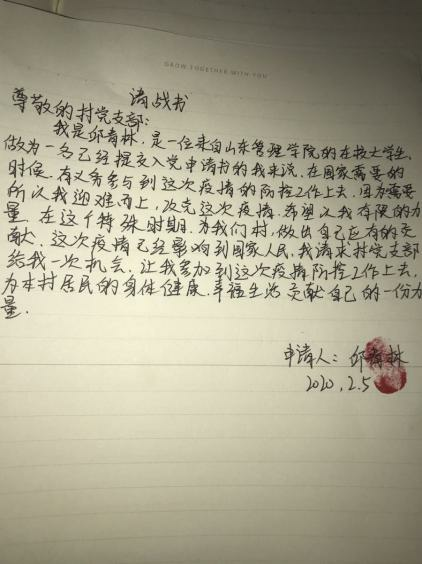 GROW TOGETHER WITH YOU
请战书
尊敬的村党支部:
我是邱春林,是一位来自山东管理学院的在校大学生,
做为一名已经提交入党申请书的我来说,在国家需要的
时候,有义务参与到这次疫情的防控工作上去,因为需要
所以我迎难而上,攻克这次疫情,希望以我有限的力
量,在这个特殊时期,为我们村,做出自己应有的贡
献,这次疫情已经影响到国家人民,我请求村党支部
给我一次机会,让我参加到这次疫情防控工作上去,
为本村居民的身体健康,幸福生活贡献自己的一份力
量.
申请人:邱春林
2020.2.5